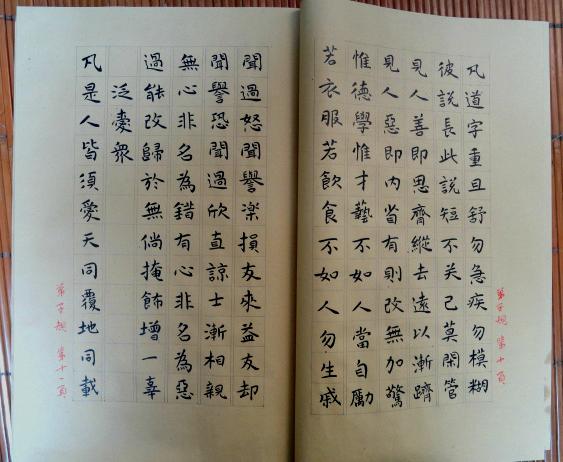 弟子規 第十頁
凡道字重且舒勿急疾勿模糊
彼說長此說短不关己莫閑管
見人善即思齊縱去遠以漸躋
見人惡即內省有則改無加驚
惟德學惟才藝不如人當自勵
若衣服若飲食不如人勿生戚
聞過怒聞譽樂損友來益友却
聞譽恐聞過欣直諒士漸相親
無心非名為錯有心非名為惡
過能改歸於無倘掩飾增一辜
泛愛衆
凡是人皆須愛天同覆地同載
弟子規 第十一頁